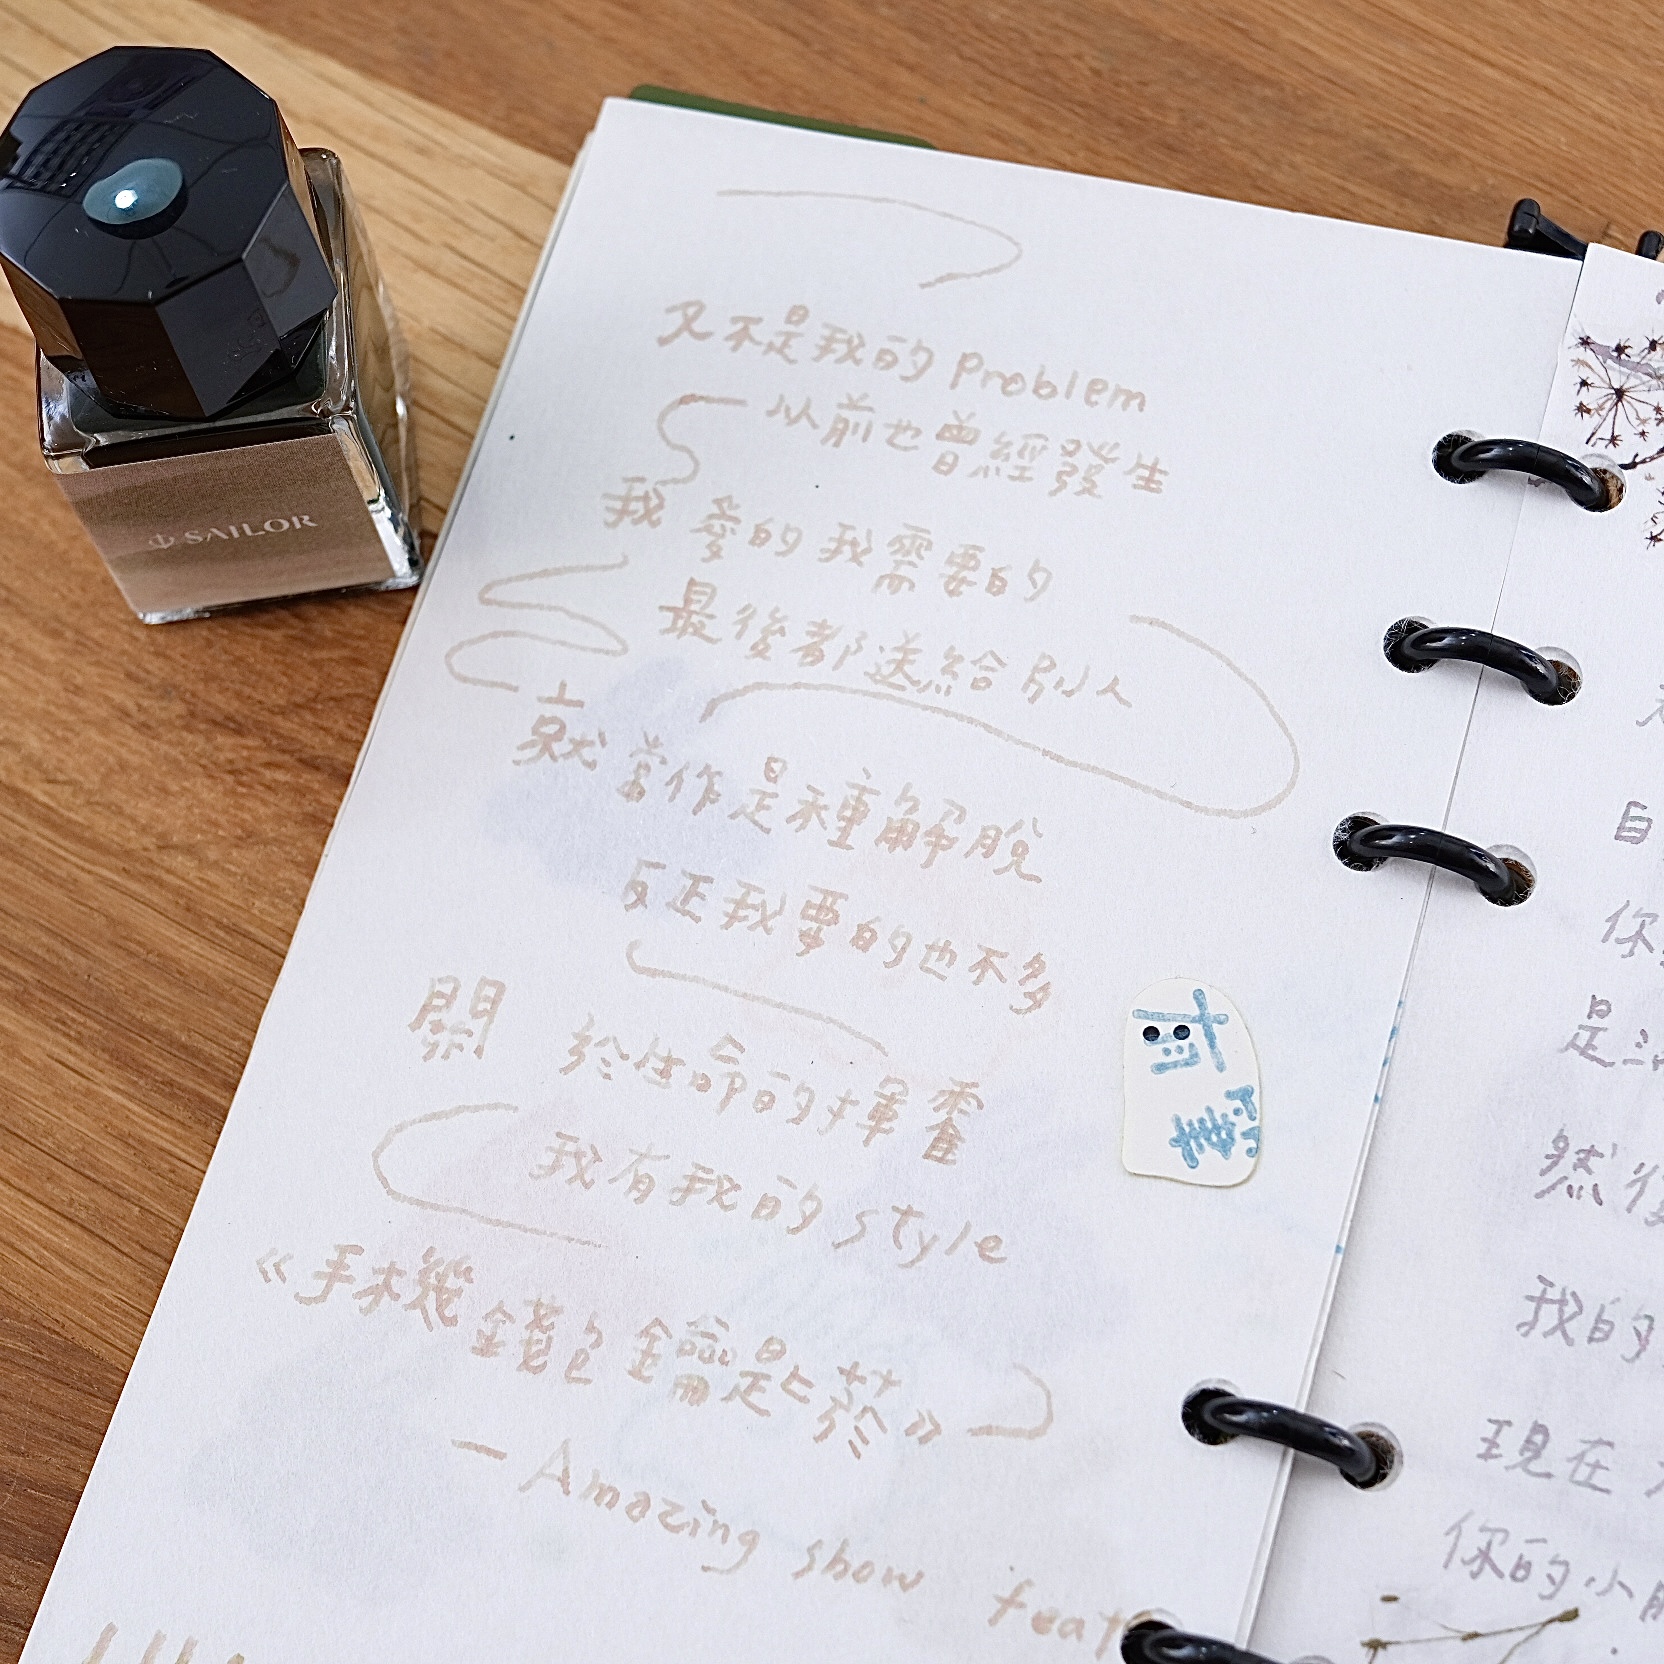 SAILOR
又不是我的 problem
以前也曾經發生
我愛的我需要的
最後都送給別人
就當作是種解脫
反正我要的也不多
關於生命的揮霍
我有我的 style
《手機錢包鑰匙菸》
— Amazing show feat
自
你
是
然後
我的
現在
你的小